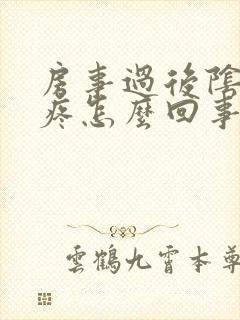 房事過後陰
疼怎麼回事
雲鶴九霄本尊